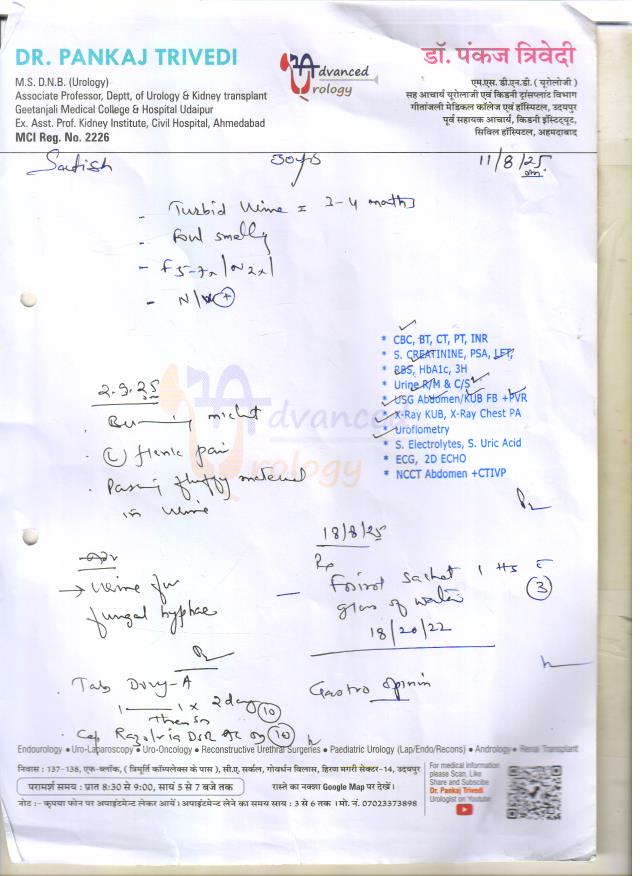 DR. PANKAJ TRIVEDI
M.S. D.N.B. (Urology)
Associate Professor, Deptt, of Urology & Kidney transplant
Geetanjali Medical College & Hospital Udaipur
Ex. Asst. Prof. Kidney Institute, Civil Hospital, Ahmedabad
MCI Reg. No. 2226
Advanced
Urology
डॉ. पंकज त्रिवेदी
एम.एस. डी.एन.बी. ( यूरोलोजी )
सह आचार्य यूरोलाजी एवं किडनी ट्रांसप्लांट विभाग
गीतांजली मेडिकल कॉलेज एवं हॉस्पिटल, उदयपुर
पूर्व सहायक आचार्य, किडनी इंस्टिट्यूट,
सिविल हॉस्पिटल, अहमदाबाद
Satish 30 yrs 11/8/25
- Turbid Urine = 3-4 months
- foul smelly
- F 5-7x/N 2x/
- N/V +
* CBC, BT, CT, PT, INR
* S. CREATININE, PSA, LFT,
* BBS, HbA1c, 3H
* Urine R/M & C/S
* USG Abdomen/KUB FB +PVR
* X-Ray KUB, X-Ray Chest PA
* Uroflometry
* S. Electrolytes, S. Uric Acid
* ECG, 2D ECHO
* NCCT Abdomen +CTIVP
2.9.25
. Burning mict
. (L) flank pain
. Passing fluffy material
in urine
→ Urine for
fungal hyphae
18/8/25
Rx
- sachet 1 HS c̄
glass of water (3)
18/20/22
Gastro opinion
. Tab Doxy-A
1——1 x 2 days (10)
. Cap DSR (10)
Advanced
Urology
Endourology ● Uro-Laparoscopy ● Uro-Oncology ● Reconstructive Urethral Surgeries ● Paediatric Urology (Lap/Endo/Recons) ● Andrology ● Renal Transplant
निवास : 137-138, एफ-ब्लॉक, ( त्रिमूर्ति कॉम्पलेक्स के पास ), सी.ए. सर्कल, गोवर्धन विलास, हिरण मगरी सेक्टर-14, उदयपुर
परामर्श समय : प्रात 8:30 से 9:00, सायं 5 से 7 बजे तक
रास्ते का नक्शा Google Map पर देखें।
नोट :- कृपया फोन पर अपाइंटमेन्ट लेकर आयें। अपाइंटमेन्ट लेने का समय सायं : 3 से 6 तक । मो. नं. 07023373898
For medical information
please Scan, Like
Share and Subscibe
Dr. Pankaj Trivedi
Urologist on Youtube